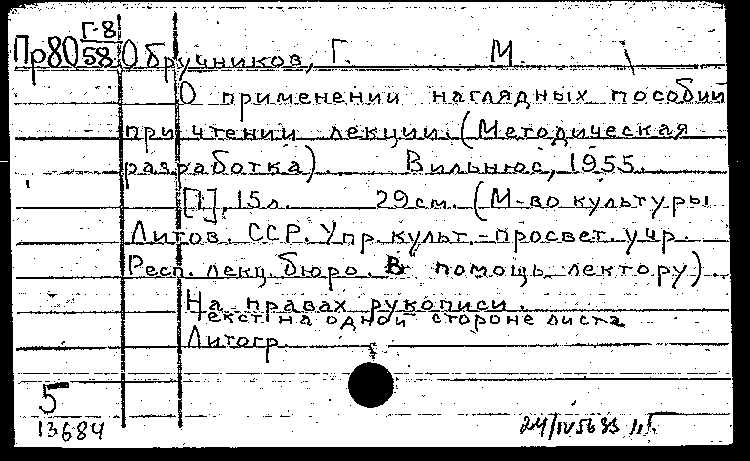 Г-8
Пр80 58 Обручников, Г. М.
О применении наглядных пособий
при чтении лекции. (Методическая
разработка). Вильнюс, 1955.
[1], 15л. 29см. (М-во культуры
Литов. ССР. Упр. культ.-просвет. учр.
Респ. лекц. бюро. В помощь лектору).
На правах рукописи.
Текст на одной стороне листа
Литогр.
5
13684
24/IV 56